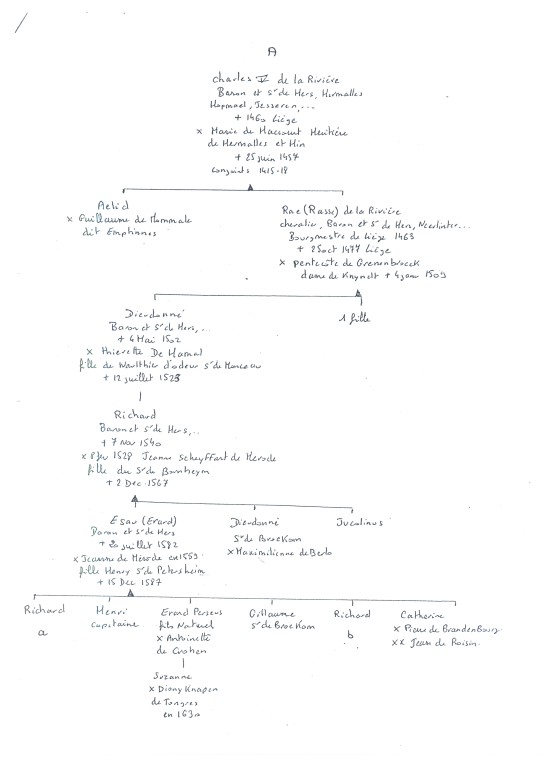 A
Charles V de la Rivière
Baron et Sr de Hers, Hermalles
Hopmael, Jesseren,...
+ 1460 Liège
x Marie de Haccourt Héritière
de Hermalles et Hin
+ 25 juin 1457
Conjoints 1415-18
Aelid
x Guillaume de Mommale
dit Emptinnes
Rae (Rasse) de la Rivière
chevalier, Baron et Sr de Hers, Neerlinter...
Bourgmestre de Liège 1463
+ 25 oct 1477 Liège
x pentecote de Grevenbroeck
dame de Knyndt + 4 janv 1503
Dieudonné
Baron et Sr de Hers,..
+ 6 Mai 1502
x Thierette De Hamal
fille de Waulthier d'odeur Sr de
+ 12 juillet 1523
1 fille
Richard
Baron et Sr de Hers,..
+ 7 Nov 1540
x 8 fev 1528 Jeanne Scheyffart de Merode
fille du Sr de Bornheym
+ 2 Dec 1567
Esau (Erard)
Baron et Sr de Hers
+ 20 juillet 1582
x Jeanne de Mérode en 1559
fille Henry Sr de Petersheim
+ 15 Dec 1587
Dieudonné
Sr de Broekom
x Maximilienne de Berlo
Juvalinus
Richard
a
Henri
Capitaine
Erand Perseus
fils Naturel
x Antoinette
de Grohen
Gillaume
Sr de Broekom
Richard
b
Catherine
x Pierre de Brandenbourg
xx Jean de Roisin
Suzanne
x Diony Knapen
de Tongres
en 1630